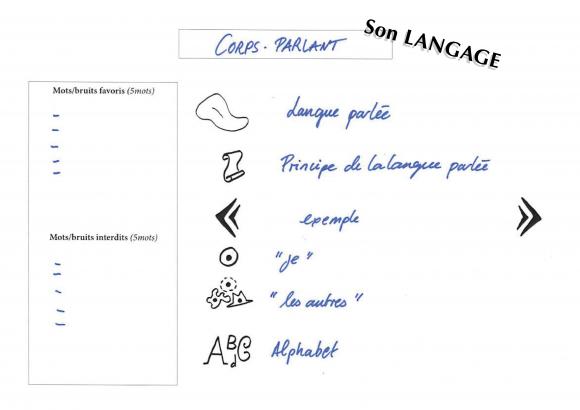 Son LANGAGE
CORPS-PARLANT
Mots/bruits favoris (5mots)
-
-
-
-
-
Mots/bruits interdits (5mots)
-
-
-
-
-
Langue parlée
Principe de la langue parlée
« exemple »
"je"
"les autres"
ABCd Alphabet